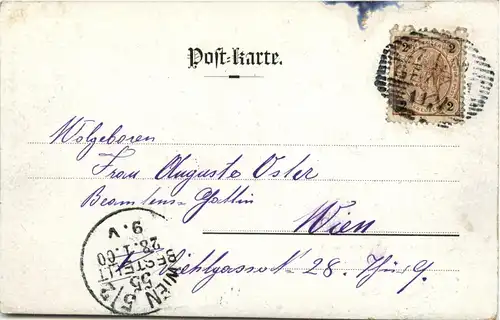 Post-karte.
2 2
2
Wolgeboren
Frau Auguste Oster
Beamtens-Gattin
Wien
Diehlgasse No 28. Thür 9.
WIEN 5/2
55
BESTELLT
28.1.00
9.V